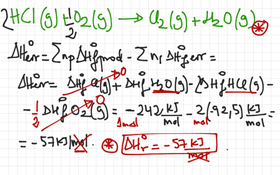 2HCl(g) + 1/2 O₂(g) → Cl₂(g) + H₂O(g) *
ΔH°rr = Σnp ΔHf°prod − Σnr ΔHf°rr
ΔH°rr = ΔHf°Cl₂(g) 0 + ΔHf°H₂O(g) − 2ΔHf°HCl(g) −
− 1/2 ΔHf°O₂(g) 0 = −242 kJ/mol 1mol − 2(−92,5) kJ/mol =
= −57 kJ/mol * ΔH°r = −57 kJ/mol